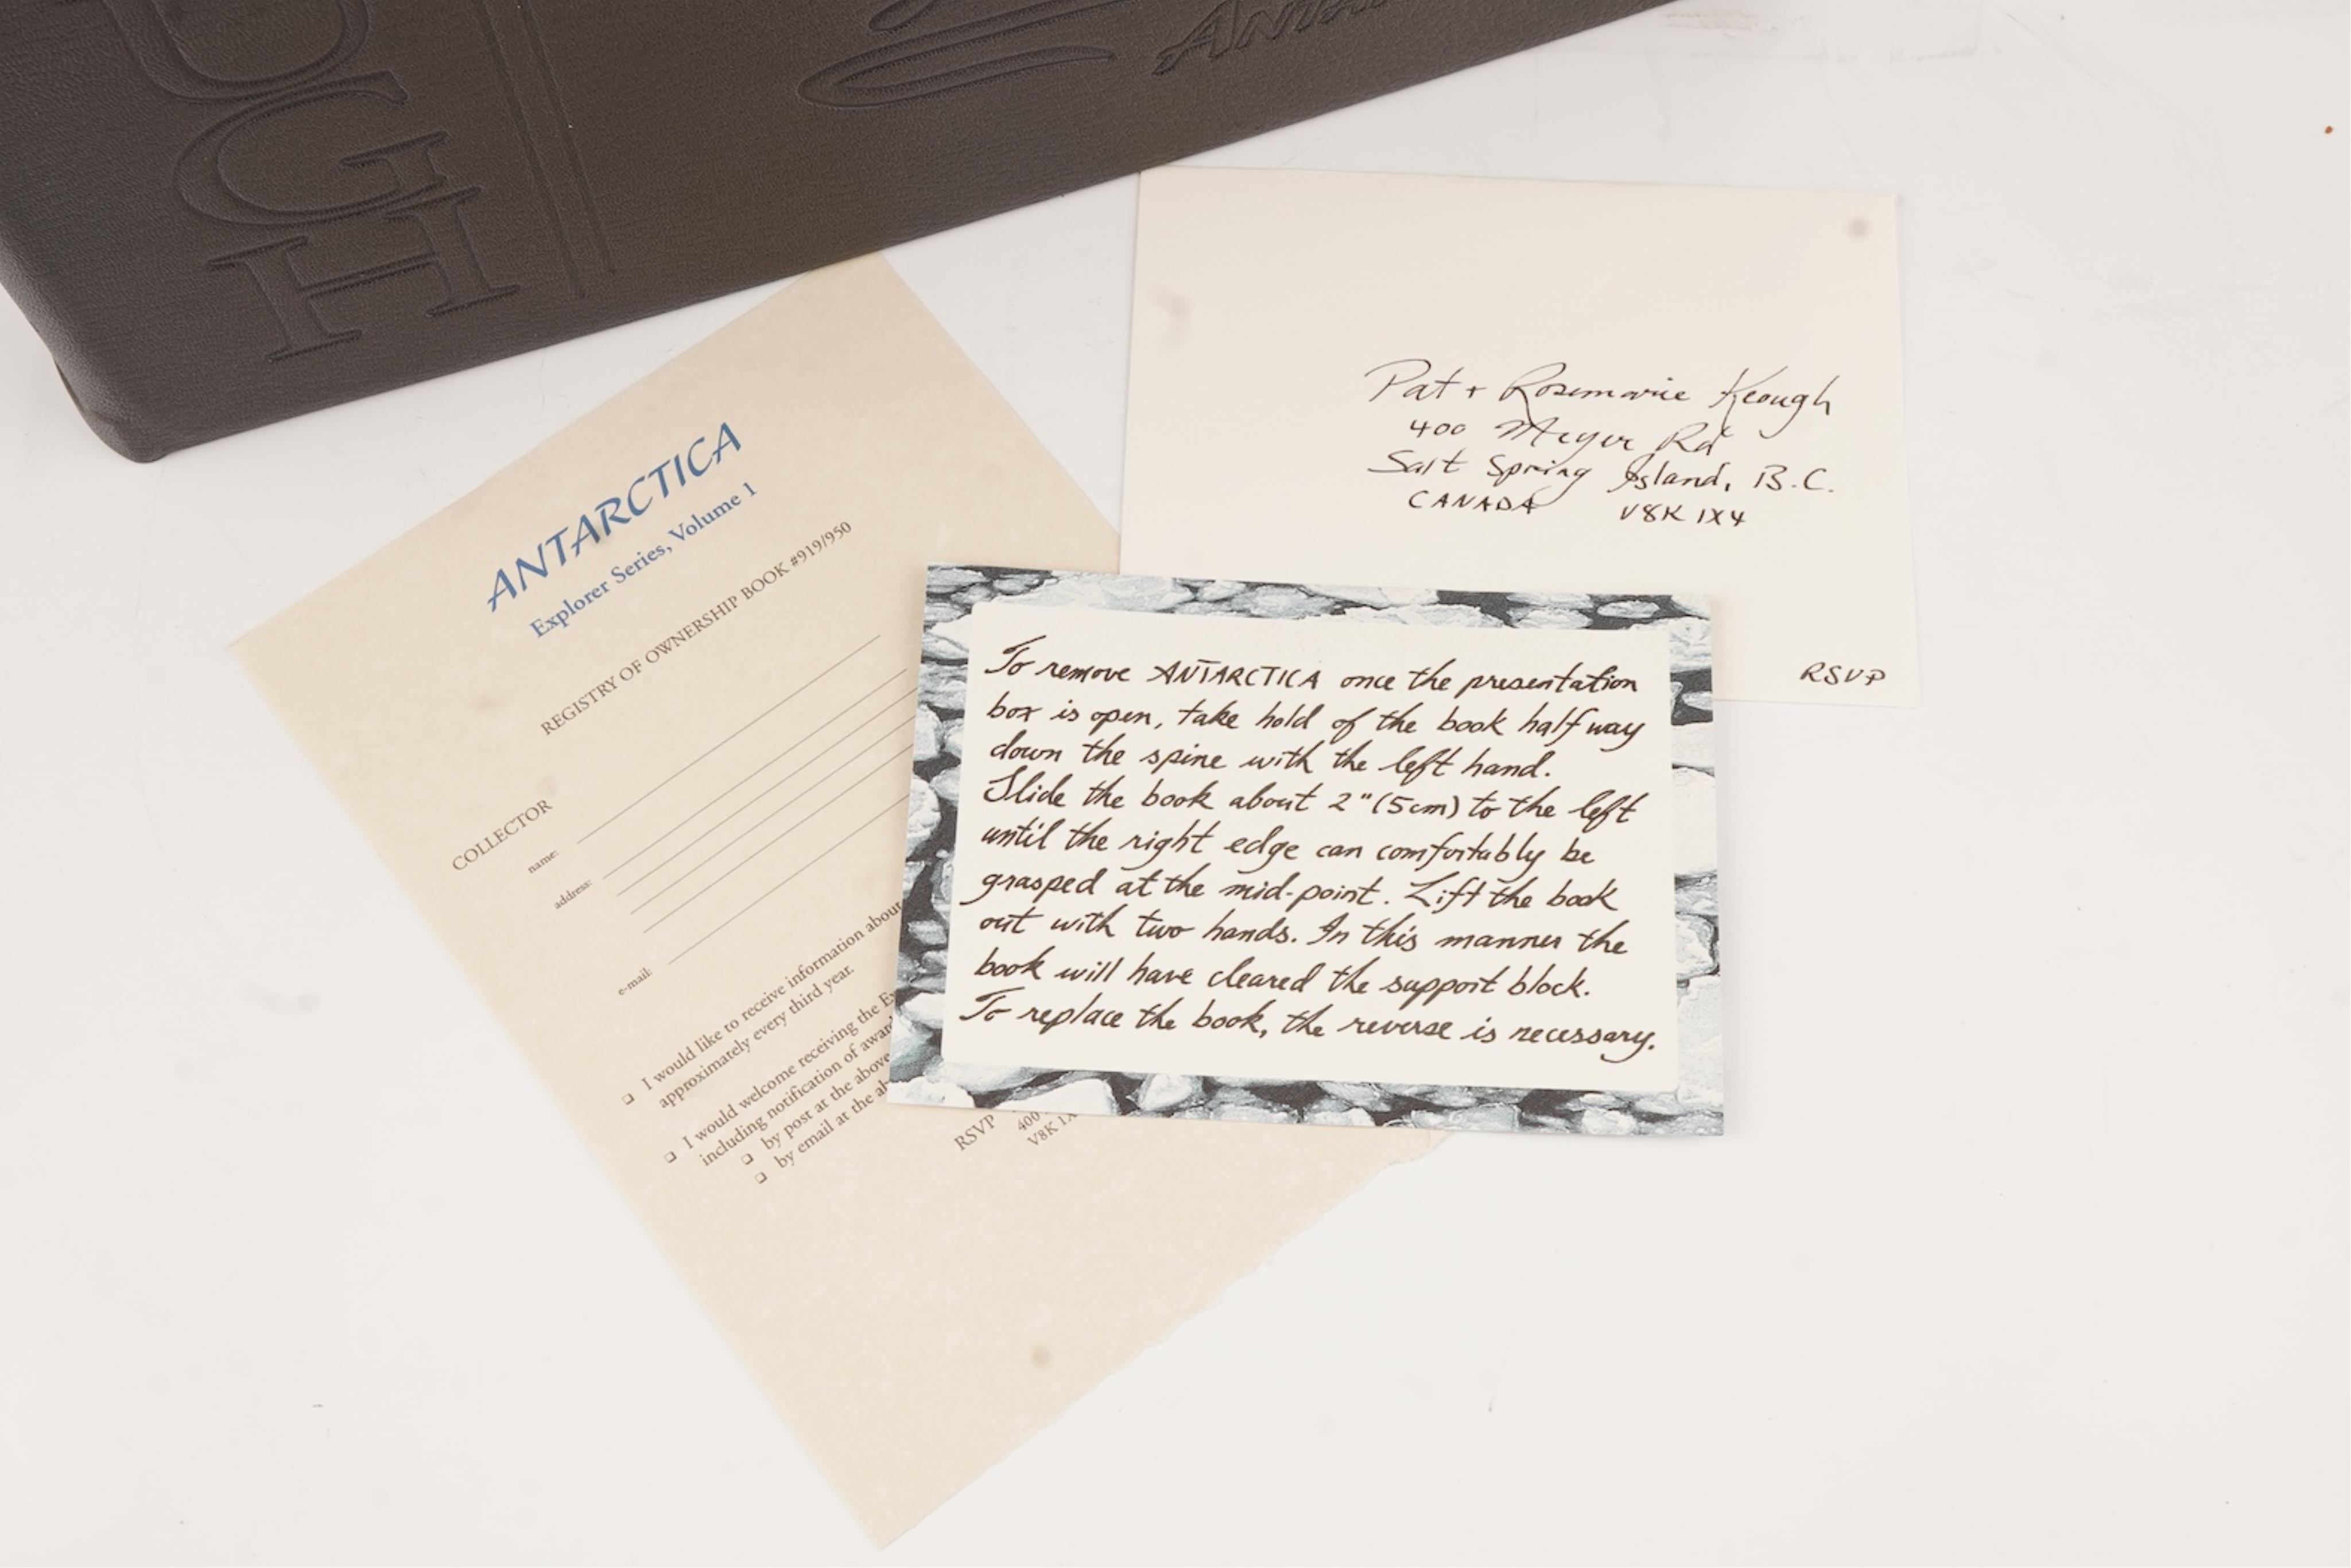 UGH
ANTARCTICA
Explorer Series, Volume 1
REGISTRY OF OWNERSHIP BOOK #919/950
COLLECTOR
name:
address:
e-mail:
❏ I would like to receive information about
approximately every third year.
❏ I would welcome receiving the
including notification of
❏ by post at the above
❏ by email at the
RSVP 400
V8K
Pat + Rosemarie Keough
400 Meyer Rd
Salt Spring Island, B.C.
CANADA V8K 1X4
RSVP
To remove ANTARCTICA once the presentation
box is open, take hold of the book half way
down the spine with the left hand.
Slide the book about 2" (5cm) to the left
until the right edge can comfortably be
grasped at the mid-point. Lift the book
out with two hands. In this manner the
book will have cleared the support block.
To replace the book, the reverse is necessary.